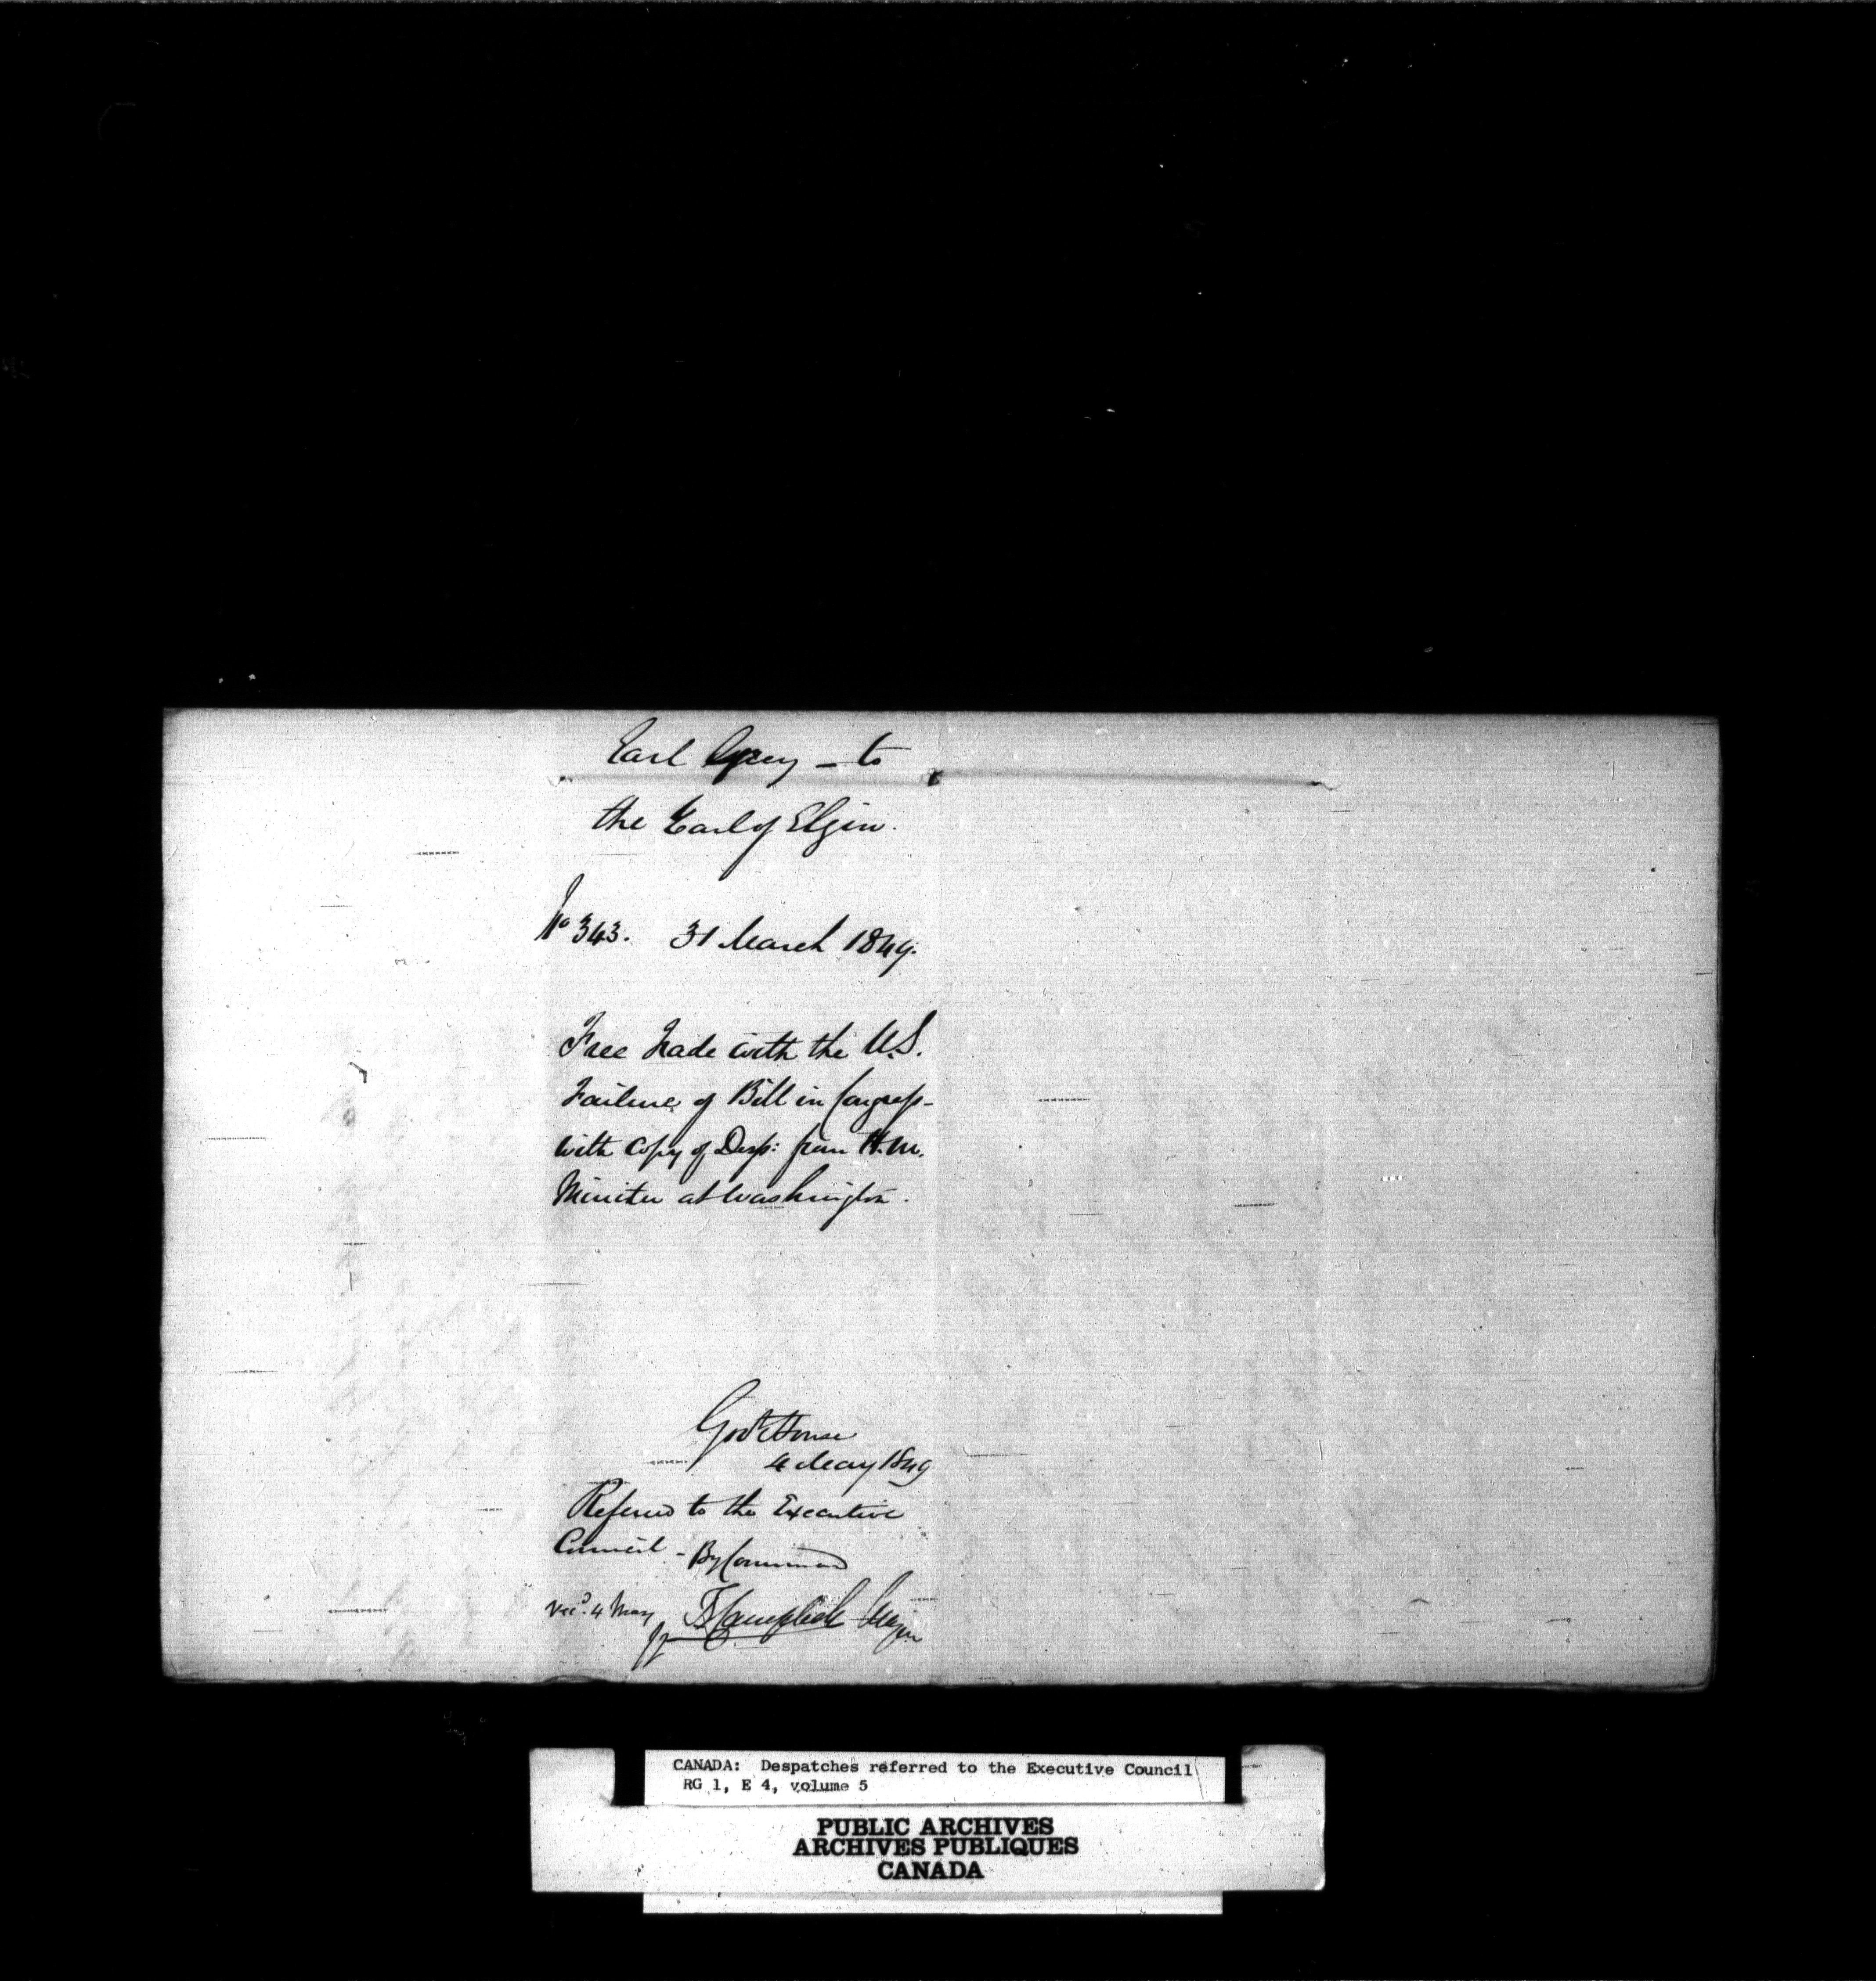 Earl Grey – to
the Earl of Elgin.
No 343. 31 March 1849.
Free Trade with the U.S.
Failure of Bill in Congress –
with Copy of Desp: from H.M.
Minister at Washington.
Govt House
4 May 1849
Referred to the Executive
Council – By Command
Recd. 4 May
T Campbell Major
CANADA: Despatches referred to the Executive Council
RG 1, E 4, volume 5
PUBLIC ARCHIVES
ARCHIVES PUBLIQUES
CANADA